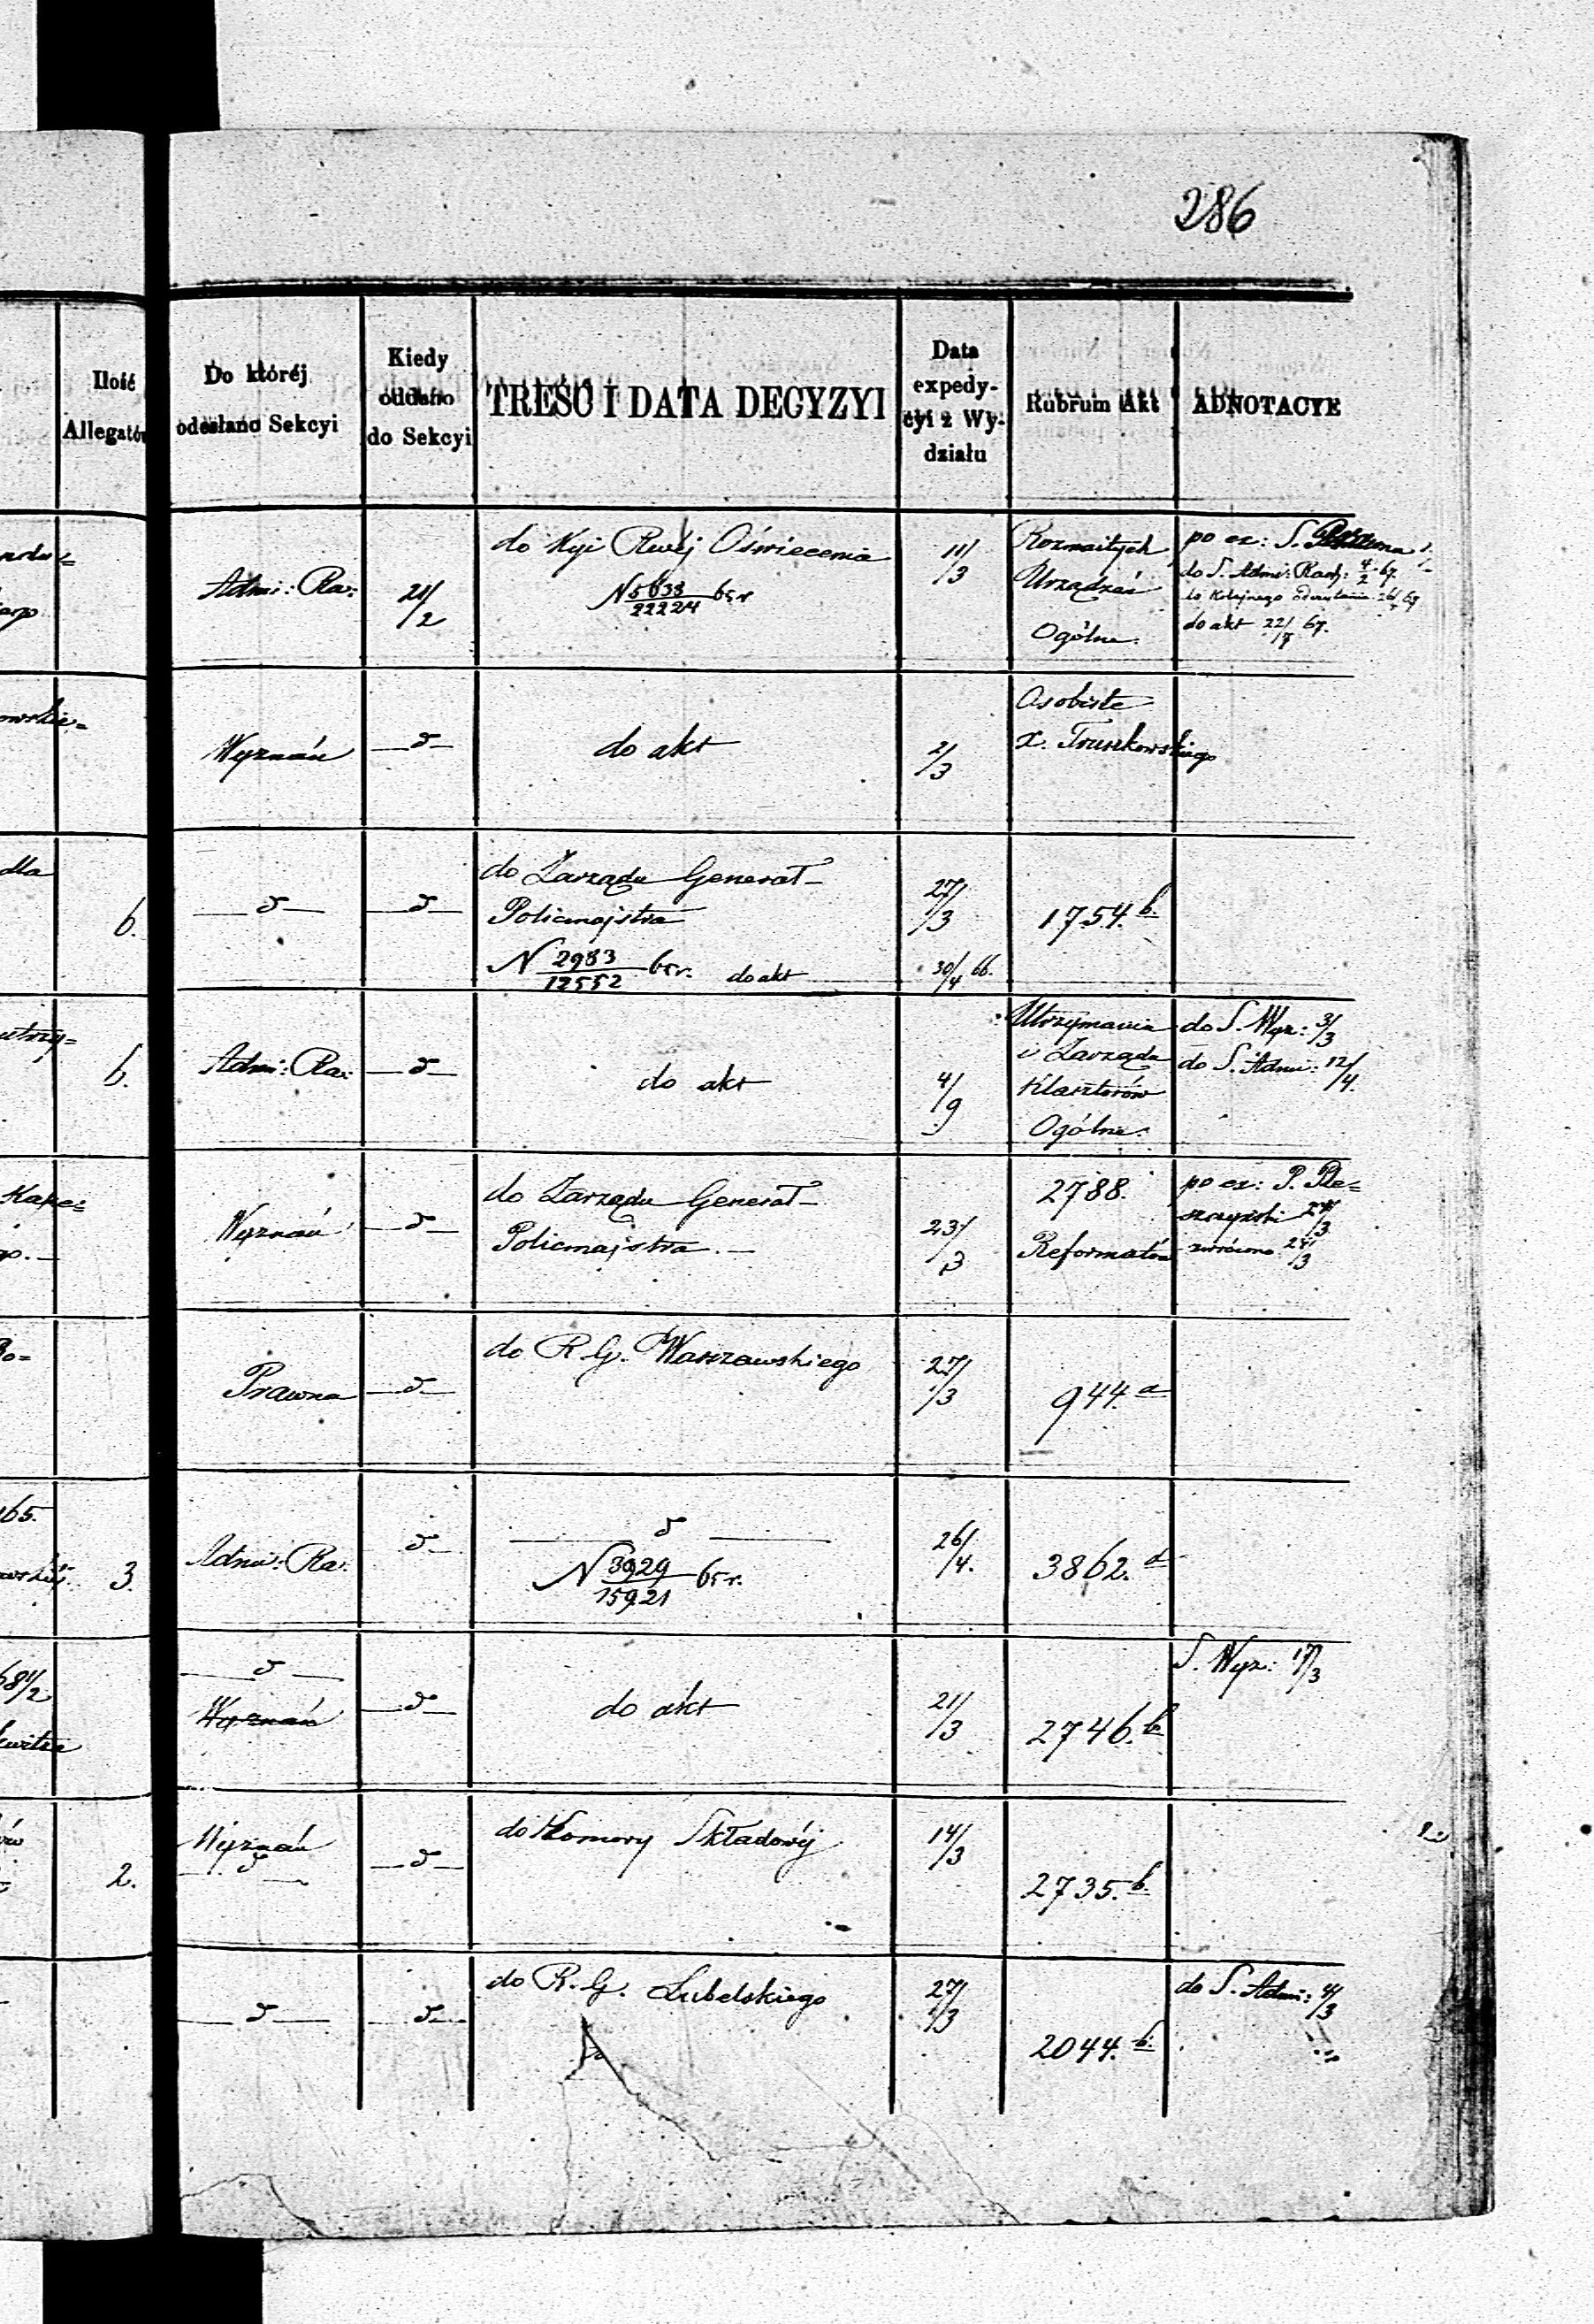 286
Ilość
Allegatów
Do której
odesłano Sekcyi
Kiedy
oddano
do Sekcyi
TREŚĆ I DATA DECYZYI
Data
expedy-
cyi z Wy-
działu
Rubrum Akt
ADNOTACYE
Admi: Ra:
21/2
do Kyi Rwéj Oświecenia
N 5633/22224 65 r
11/3
Rozmaitych
Urządzeń
Ogólne.
po ex: S.
do S. Admi: Rach: 4/2 67.
do akt 22/7 67.
Wyznań
do akt
2/3
Osobiste
x. Truszkowskiego
dla
6.
do Zarządu Generał-
Policmajstra
N 2983/12552 65 r. do akt
27/3
30/4 66.
1754. b.
6.
Admi: Ra:
do akt
4/9
Utrzymania
i Zarządu
Klasztorów
Ogólne.
do S. Wyz: 3/3
do S. Admi: 12/4.
Wyznań
do Zarządu Generał-
Policmajstra.
23/3
2788.
Reformatów
po ex: P. Ple=
szczyński 24/3
zwrócono 24/3
Prawna
do R. G. Warszawskiego
27/3
944. a
165.
3.
Admi: Ra:
N 3929/15921 65 r.
26/4.
3862. d
Wyznań
do akt
21/3
2746. b
S. Wyz: 17/3
2.
Wyznań
do Komory Składowéj
14/3
2735. b.
do R. G. Lubelskiego
27/3
2044. b.
do S. Admi: 4/3